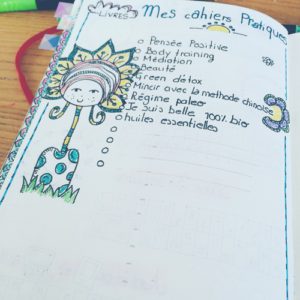 LIVRES
Mes cahiers Pratiques
Pensée Positive
Body training
Médiation
Beauté
Green détox
Mincir avec la methode chinoise
Régime paleo
Je Suis belle 100% bio
huiles essentielles